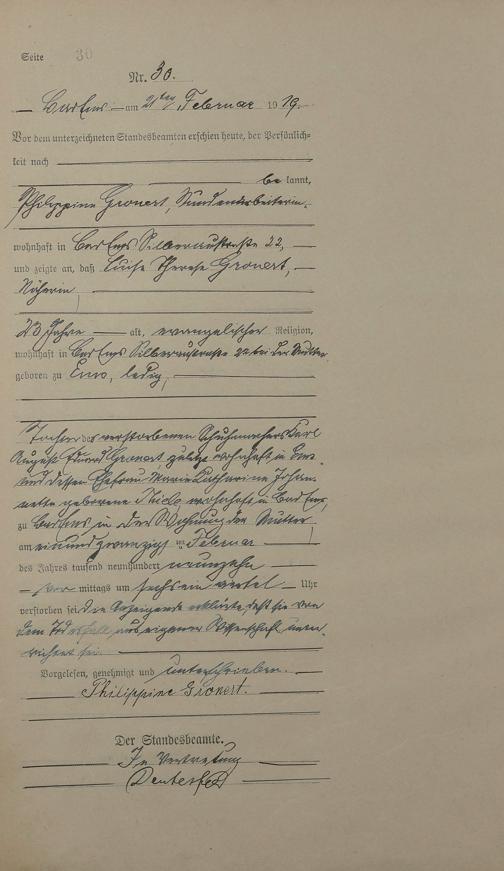 Seite 30
Nr. 30.
Bad Ems am 21ten Februar 1919.
Vor dem unterzeichneten Standesbeamten erschien heute, der Persönlich-
keit nach
be kannt,
Philippine Gronert,
wohnhaft in Bad Ems Silberaustraße 22,
und zeigte an, daß Luise Therese Gronert,
Näherin,
23 Jahre alt, evangelischer Religion,
wohnhaft in Bad Ems Silberaustraße 22 bei der Mutter
geboren zu Ems, ledig,
Tochter des verstorbenen Schuhmachers Karl
August Eduard Gronert, zuletzt wohnhaft in Ems
und dessen Ehefrau Maria Katharina Johan-
nette geborene wohnhaft in Bad Ems,
zu Bad Ems in der Wohnung der Mutter,
am einundzwanzigsten Februar
des Jahres tausend neunhundert neunzehn
vor mittags um sechs ein viertel Uhr
verstorben sei. Die Anzeigende erklärte, daß sie von
dem Todesfall aus eigener Wissenschaft unter-
richtet sei.
Vorgelesen, genehmigt und unterschrieben.
Philippine Gronert.
Der Standesbeamte.
In Vertretung